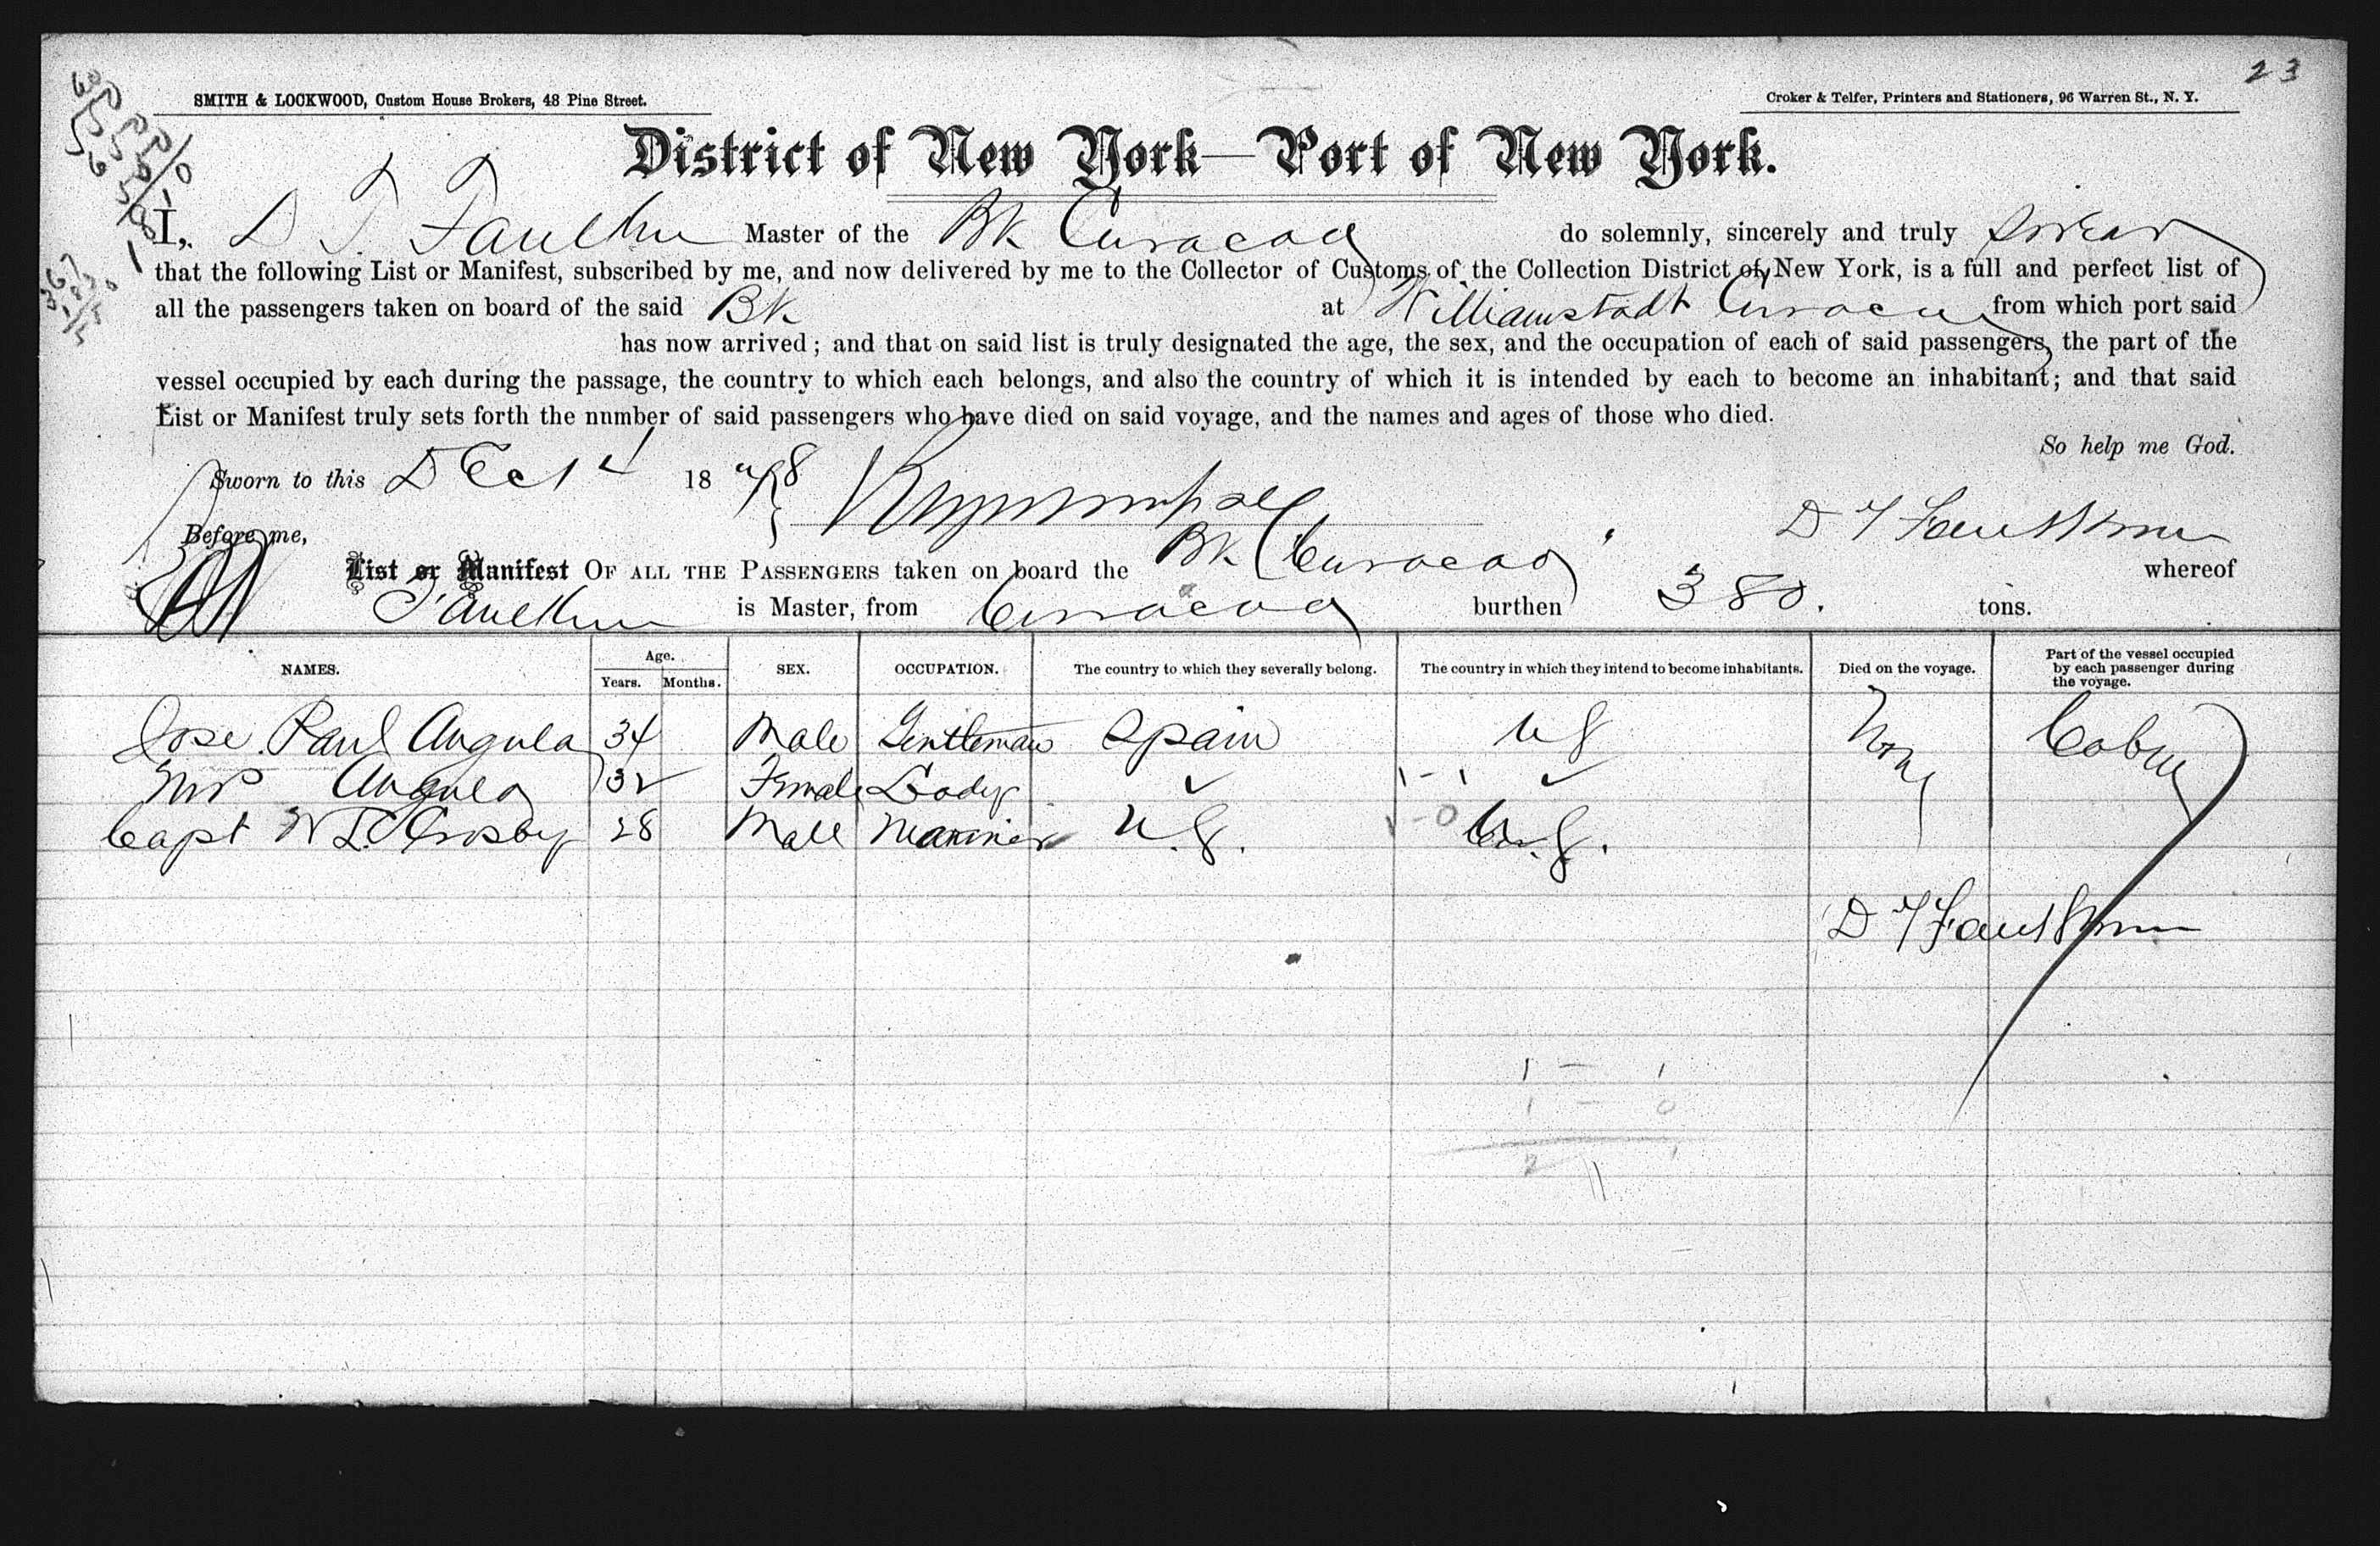 23
SMITH & LOOKWOOD, Custom House Brokers, 48 Pine Street.
Croker & Telfer, Printers and Stationers, 96 Warren St., N. Y.
District of New York—Port of New York.
I, D T. Faulkner Master of the Bk Curacao do solemnly, sincerely and truly swear
that the following List or Manifest, subscribed by me, and now delivered by me to the Collector of Customs of the Collection District of New York, is a full and perfect list of
all the passengers taken on board of the said Bk at Williamstadt Curacao from which port said
has now arrived; and that on said list is truly designated the age, the sex, and the occupation of each of said passengers, the part of the
vessel occupied by each during the passage, the country to which each belongs, and also the country of which it is intended by each to become an inhabitant; and that said
List or Manifest truly sets forth the number of said passengers who have died on said voyage, and the names and ages of those who died.
So help me God.
Sworn to this Dec 14 1878
Before me,
D T Faulkner
List or Manifest OF ALL THE PASSENGERS taken on board the Bk Curacao whereof
Faulkner is Master, from Curacao burthen 380. tons.
NAMES. Age. Years. Months. SEX. OCCUPATION. The country to which they severally belong. The country in which they intend to become inhabitants. Died on the voyage. Part of the vessel occupied by each passenger during the voyage.
Jose Paul Angula 34 Male Gentleman Spain US None Cabin
Mrs Angula 32 Female Lady ✓ 1-1 ✓
Capt W L Crosby 28 Male Mariner U.S. 1-0 U.S.
D T Faulkner
1 — 1
1 — 0
2 1